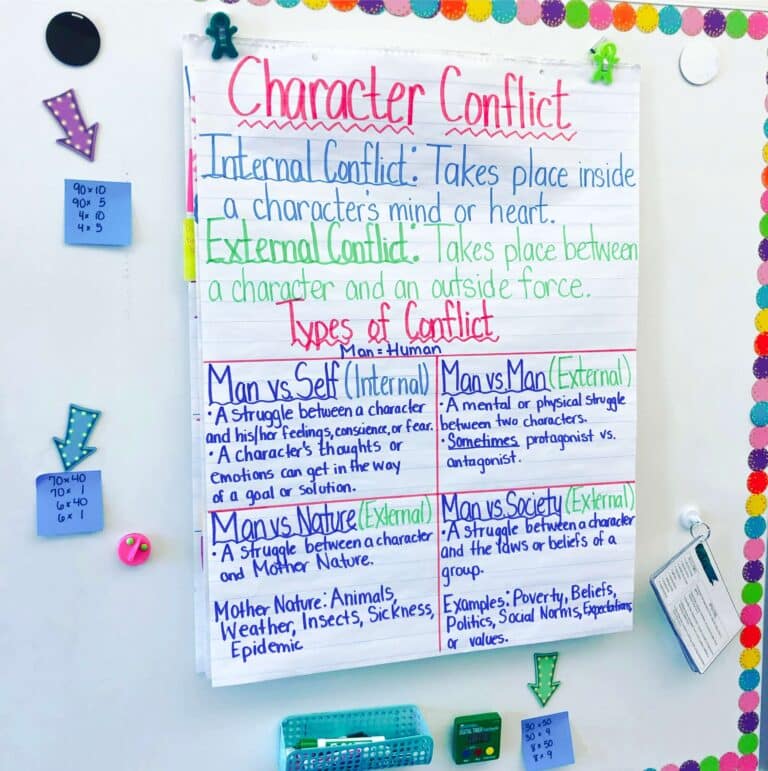 Character Conflict
Internal Conflict: Takes place inside
a character's mind or heart.
External Conflict: Takes place between
a character and an outside force.
Types of Conflict
Man = Human
Man vs Self (Internal)
• A struggle between a character
and his/her feelings, conscience, or fear.
• A character's thoughts or
emotions can get in the way
of a goal or solution.
Man vs. Man (External)
• A mental or physical struggle
between two characters.
• Sometimes protagonist vs.
antagonist.
Man vs Nature (External)
• A struggle between a character
and Mother Nature.
Mother Nature: Animals,
Weather, Insects, Sickness,
Epidemic
Man vs. Society (External)
• A struggle between a character
and the laws or beliefs of a
group.
Examples: Poverty, Beliefs,
Politics, Social Norms, Expectations,
or values.
90 x 10
90 x 5
4 x 10
4 x 5
70 x 40
70 x 1
6 x 40
6 x 1
30 x 50
30 x 9
8 x 50
8 x 9
DIGITAL TIMER